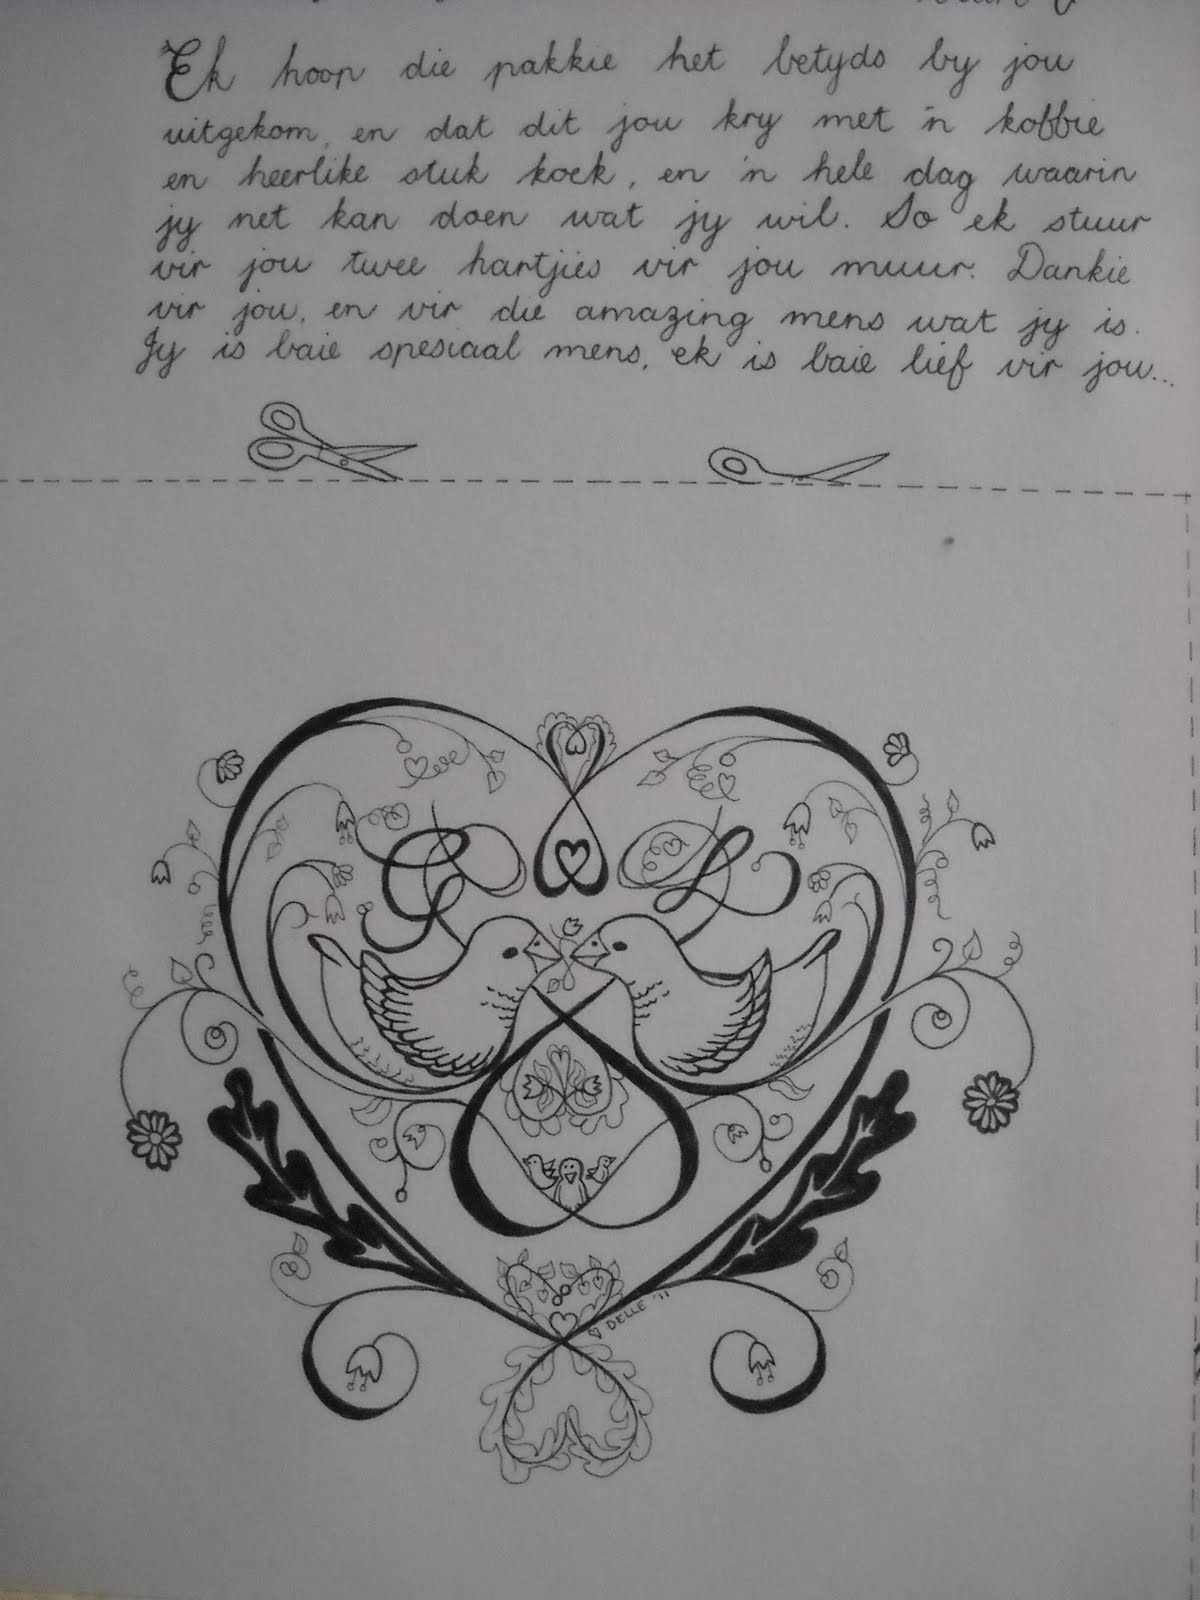 Ek hoop die pakkie het betyds by jou
uitgekom, en dat dit jou kry met 'n koffie
en heerlike stuk koek, en 'n hele dag waarin
jy net kan doen wat jy wil. So ek stuur
vir jou twee hartjies vir jou muur. Dankie
vir jou, en vir die amazing mens wat jy is.
Jy is baie spesiaal mens, ek is baie lief vir jou...
G L
DELLE '11